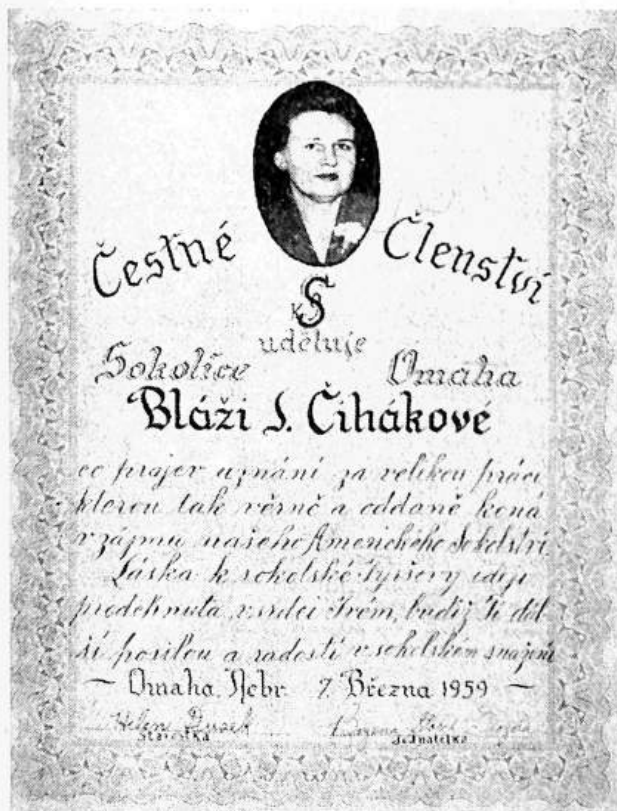 Čestné Členství
uděluje
Sokolice Omaha
Bláži S. Čihákové
co projev uznání za velikou práci
kterou tak věrně a oddaně koná
v zájmu našeho Amerického Sokolství.
Láska k sokolské Tyršovy ideji
prodchnuta v srdci Tvém, budiž Ti dal-
ší posilou a radostí v sokolském snažení
— Omaha, Nebr. 7. Března 1959 —
Helen Dusek
Starostka Jednatelka